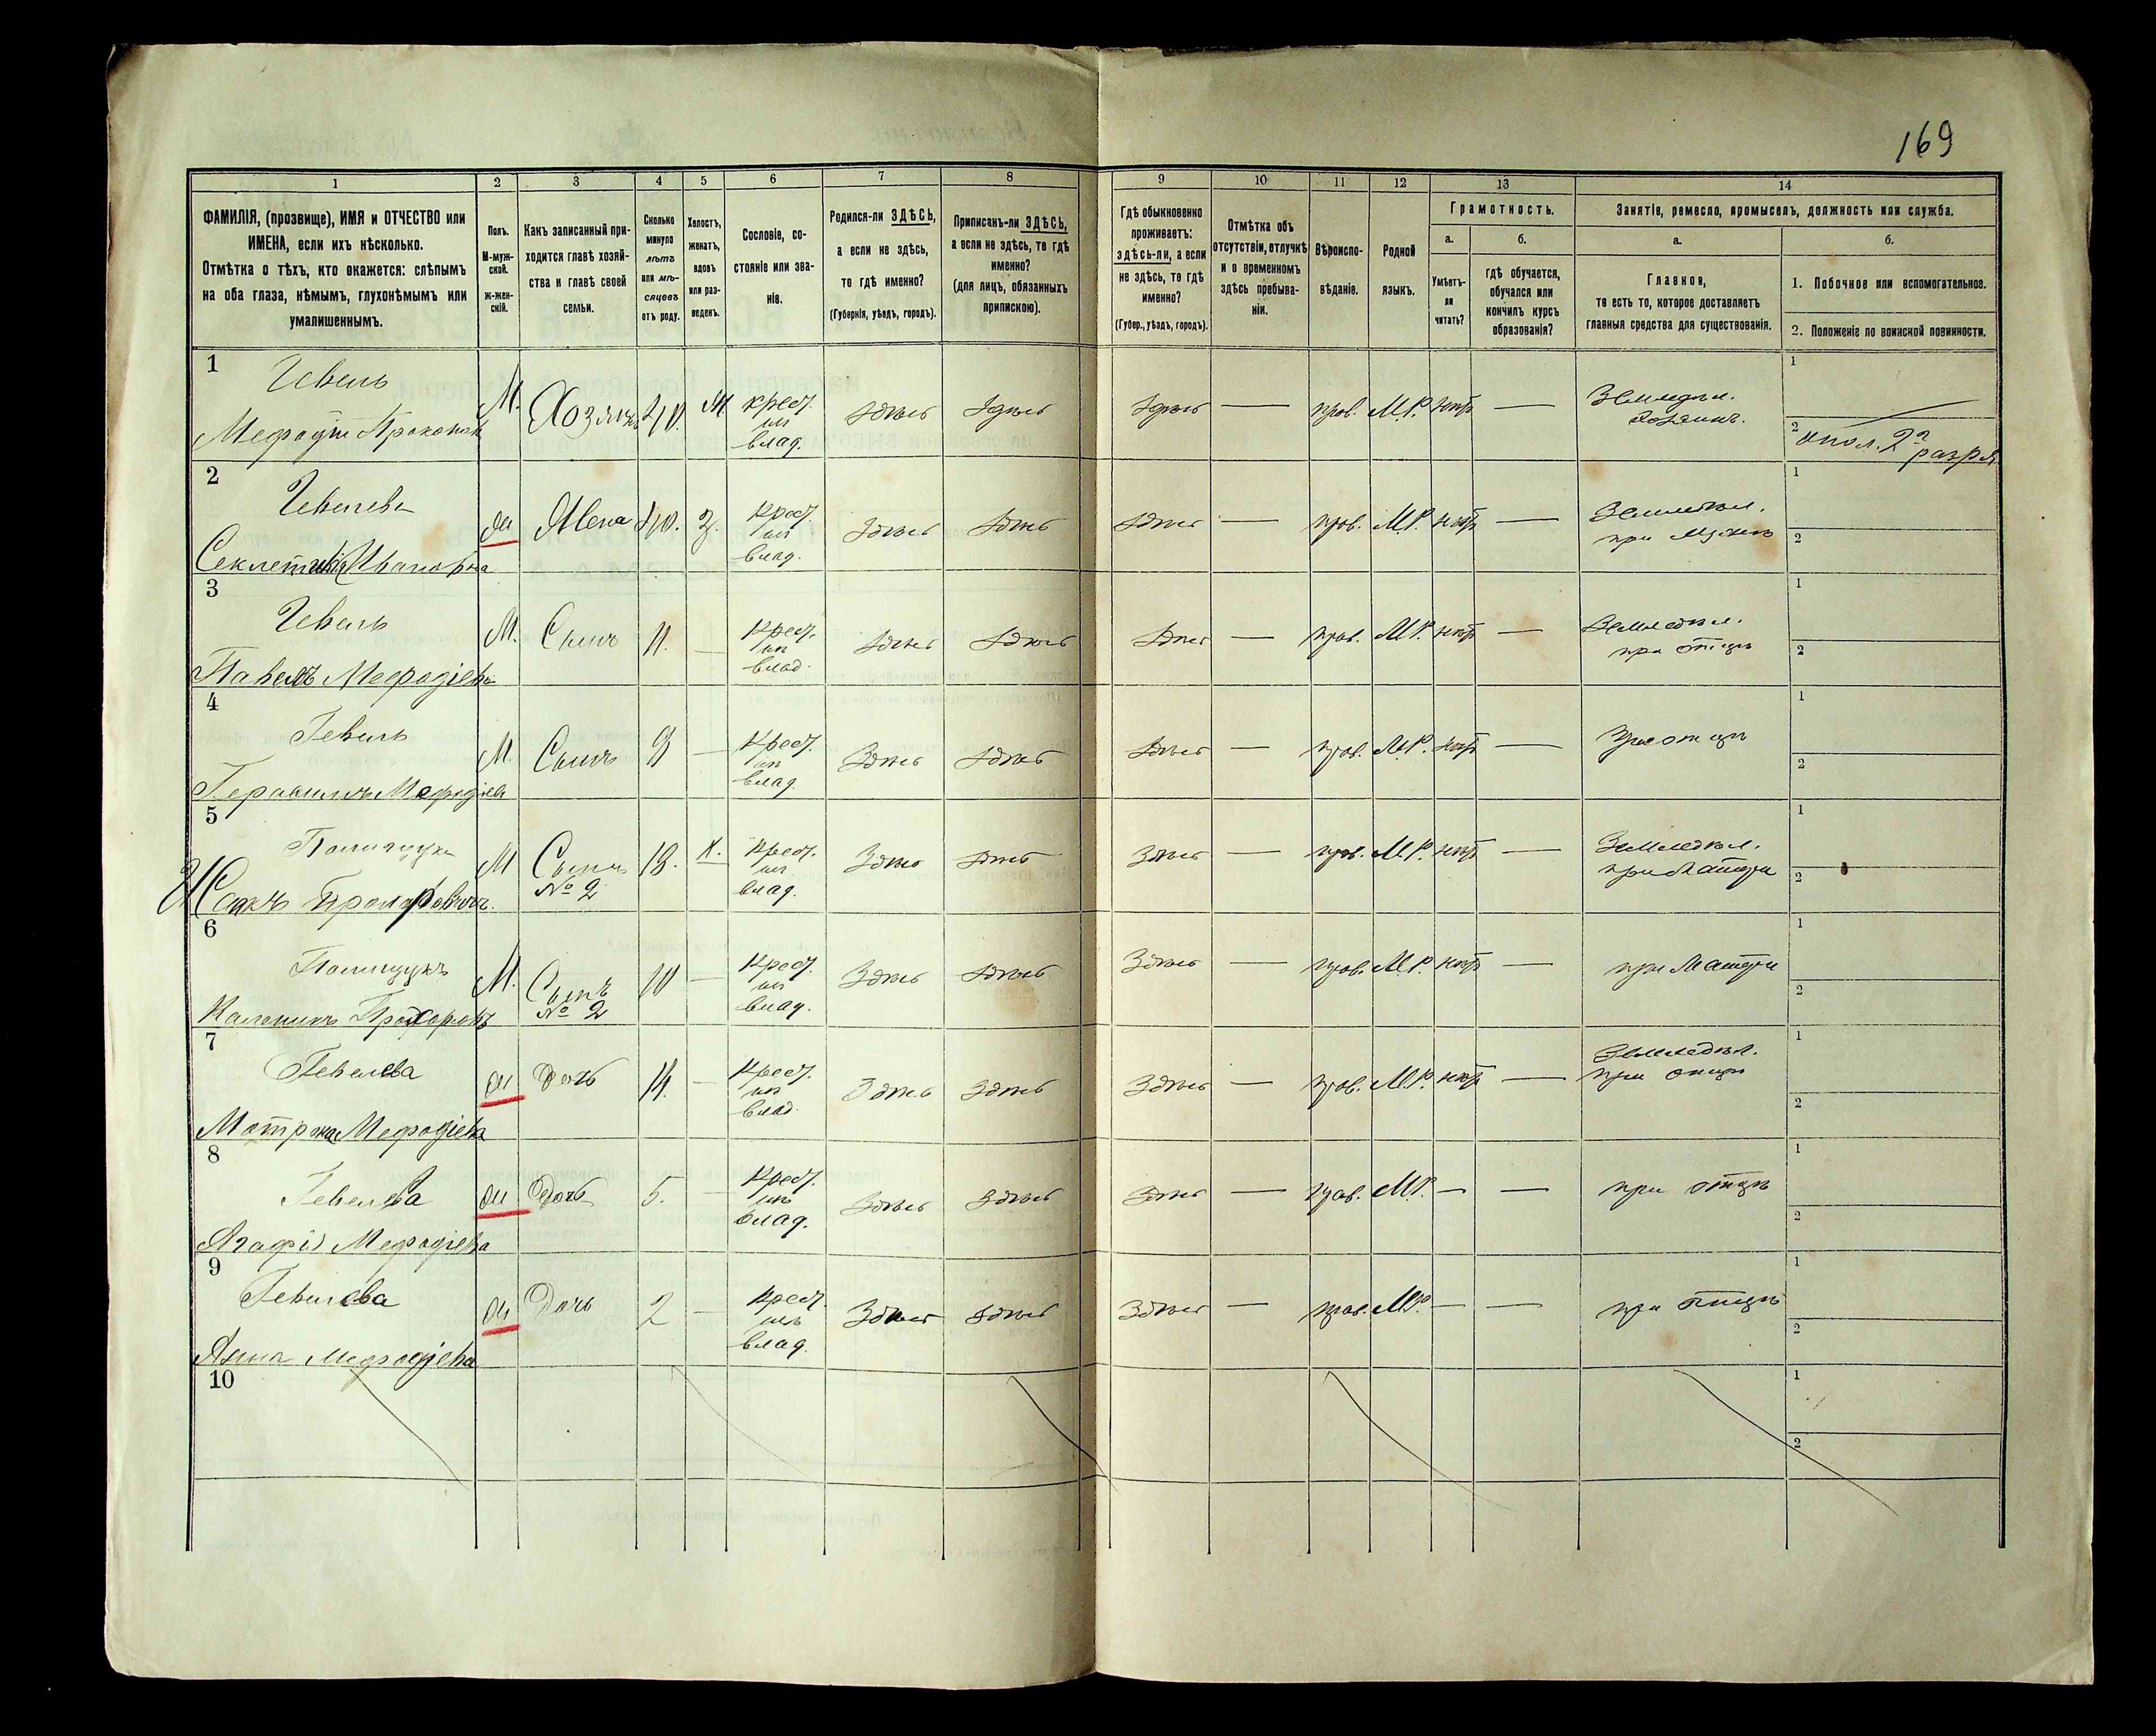 169
1 2 3 4 5 6 7 8 9 10 11 12 13 14
ФАМИЛІЯ, (прозвище), ИМЯ и ОТЧЕСТВО или
ИМЕНА, если ихъ нѣсколько.
Отмѣтка о тѣхъ, кто окажется: слѣпымъ
на оба глаза, нѣмымъ, глухонѣмымъ или
умалишеннымъ.
Полъ.
М-муж-
ской.
ж-жен-
скій.
Какъ записанный при-
ходится главѣ хозяй-
ства и главѣ своей
семьи.
Сколько
минуло
лѣтъ
или мѣ-
сяцевъ
отъ роду.
Холостъ,
женатъ,
вдовъ
или раз-
веденъ.
Сословіе, со-
стояніе или зва-
ніе.
Родился-ли ЗДѢСЬ,
а если не здѣсь,
то гдѣ именно?
(Губернія, уѣздъ, городъ).
Приписанъ-ли ЗДѢСЬ,
а если не здѣсь, то гдѣ
именно?
(для лицъ, обязанныхъ
припискою).
Гдѣ обыкновенно
проживаетъ:
здѣсь-ли, а если
не здѣсь, то гдѣ
именно?
(Губер., уѣздъ, городъ).
Отмѣтка объ
отсутствіи, отлучкѣ
и о временномъ
здѣсь пребыва-
ніи.
Вѣроиспо-
вѣданіе.
Родной
языкъ.
Грамотность.
а.
Умѣетъ-
ли
читать?
б.
гдѣ обучается,
обучался или
кончилъ курсъ
образованія?
Занятіе, ремесло, промыселъ, должность или служба.
а.
Главное,
то есть то, которое доставляетъ
главныя средства для существованія.
б.
1. Побочное или вспомогательное.
2. Положеніе по воинской повинности.
1
Гевель
Мефодій
М. Хозяинъ 40. ж крест. из влад. здѣсь здѣсь здѣсь — прав. М.Р. нѣтъ — Земледѣл. хозяинъ.
1
2 опол. 2го разря
2
Гевелева
Ивановна
ж Жена 40. з. крест. из влад. здѣсь здѣсь здѣсь — прав. М.Р. нѣтъ — Земледѣл. при мужѣ
1
2
3
Гевель
Павелъ Мефодіевъ
М. Сынъ 11. — крест. из влад. здѣсь здѣсь здѣсь — прав. М.Р. нѣтъ — Земледѣл. при отцѣ
1
2
4
Гевель
Герасимъ Мефодіев
М. Сынъ 9 — крест. из влад. здѣсь здѣсь здѣсь — прав. М.Р. нѣтъ — при отцѣ
1
2
5
Полищукъ
М Сынъ № 2 18. х. крест. из влад. здѣсь здѣсь здѣсь — прав. М.Р. нѣтъ — Земледѣл. при матери
1
2
6
Полищукъ
Каленикъ Прохоровъ
М. Сынъ № 2 10 — крест. из влад. здѣсь здѣсь здѣсь — прав. М.Р. нѣтъ — при матери
1
2
7
Гевелева
Мотрона Мефодіева
ж Дочь 14. — крест. из влад. здѣсь здѣсь здѣсь — прав. М.Р. нѣтъ — Земледѣл. при отцѣ
1
2
8
Гевелева
Агафія Мефодіева
ж Дочь 5. — крест. из влад. здѣсь здѣсь здѣсь — прав. М.Р. — — при отцѣ
1
2
9
Гевелева
Анна Мефодіева
ж Дочь 2 — крест. из влад. здѣсь здѣсь здѣсь — прав. М.Р. — — при отцѣ
1
2
10
1
2